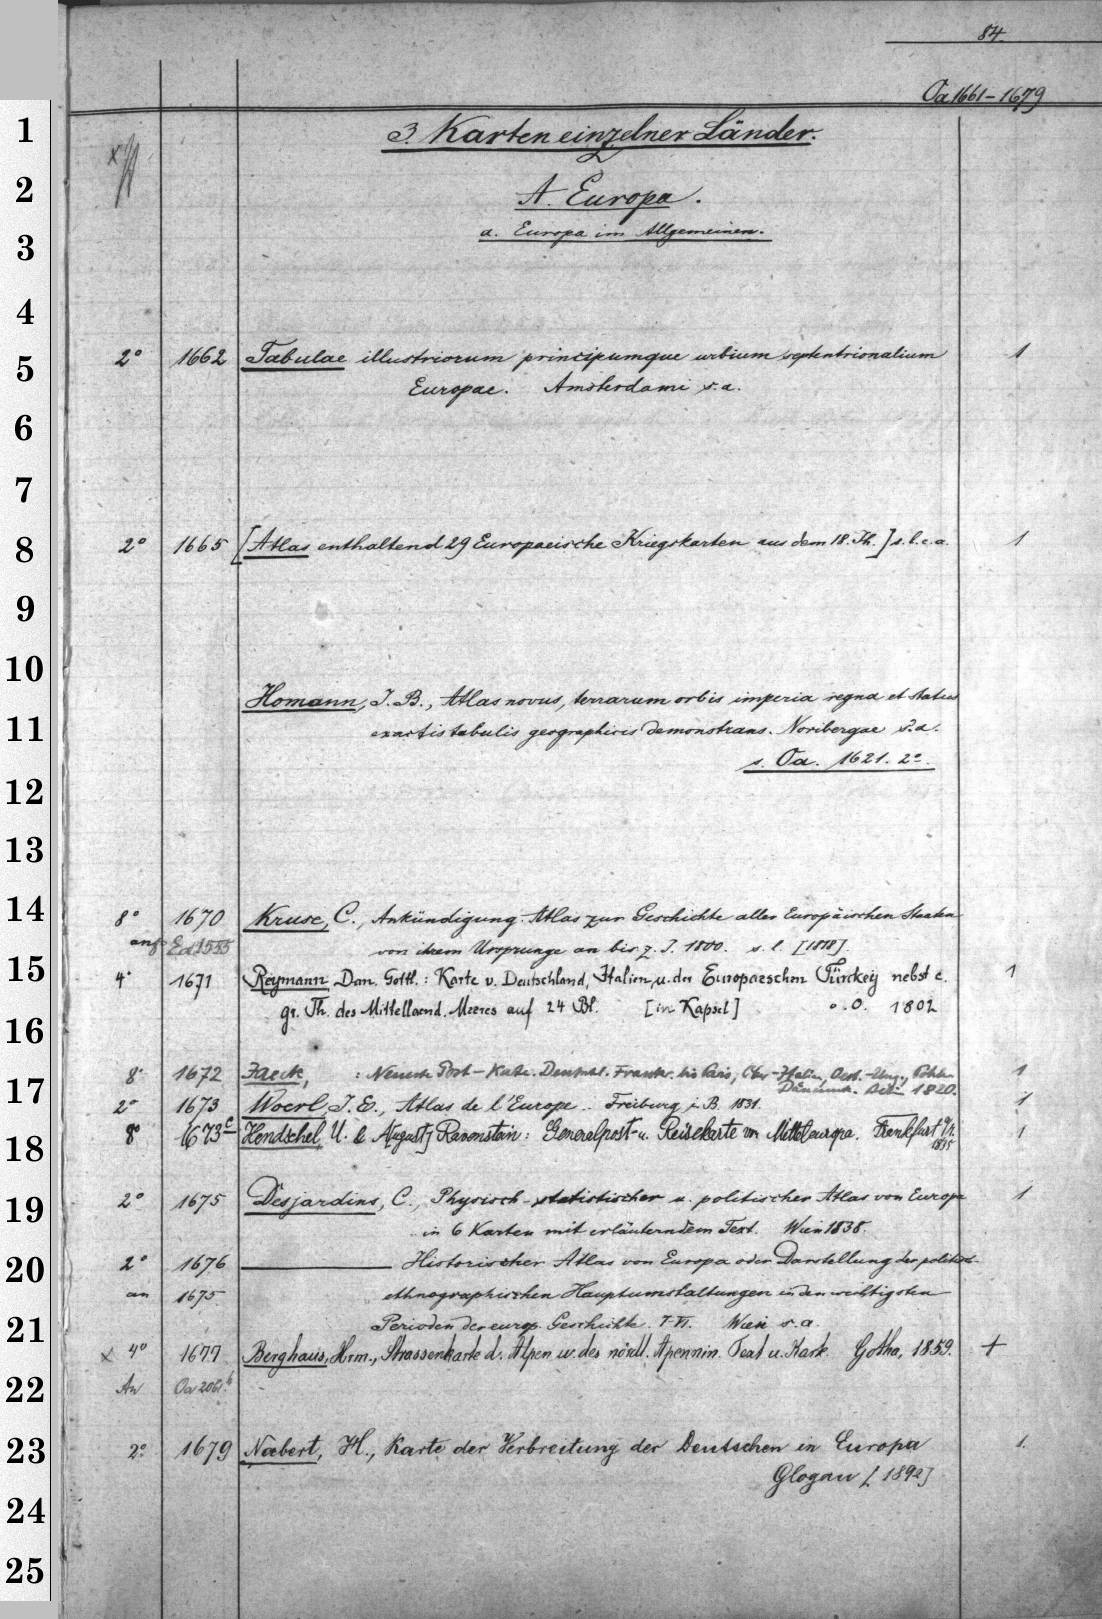 84.
Oa 1661-1679
1
2
3
4
5
6
7
8
9
10
11
12
13
14
15
16
17
18
19
20
21
22
23
24
25
3. Karten einzelner Länder.
A. Europa.
a. Europa im Allgemeinen.
2° 1662 Tabulae illustriorum principumque urbium septentrionalium 1
Europae. Amsterdami s. a.
2° 1665 [Atlas enthaltend 29 Europaeische Kriegskarten aus dem 18. Jh.] s. l. e. a. 1
Homann, J. B., Atlas novus, terrarum orbis imperia regna et status
exactis tabulis geographicis demonstrans. Noribergae s. a.
s. Oa. 1621. 2°.
8° 1670 Kruse, C., Ankündigung. Atlas zur Geschichte aller Europäischen Staaten
ang Ed 1555 von ihrem Ursprunge an bis z. J. 1800. s. l. [1818].
4° 1671 Reymann, Dan. Gottl.: Karte v. Deutschland, Italien, u. der Europaeschen Türckey nebst e. 1
gr. Th. des Mittellaend. Meeres auf 24 Bl. [in Kapsel] o. O. 1802
8° 1672 Jaeck, : Neueste Post-Karte. Deutschl. Frankr. bis Paris, Ober-Italien, Oest.-Ung., 1
1820.
2° 1673 Woerl, J. E., Atlas de l'Europe. Freiburg i. B. 1831. 1
8° 1673c Hendschel, U. [& August] Ravenstein: Generalpost- u. Reisekarte von Mitteleuropa. Frankfurt a/M. 1
2° 1675 Desjardins, C., Physisch-statistischer u. politischer Atlas von Europa 1
in 6 Karten mit erläuterndem Text. Wien 1838.
2° 1676 ——— Historischer Atlas von Europa oder Darstellung der politisch-
an 1675. ethnographischen Hauptumstaltungen in den wichtigsten
Perioden der europ. Geschichte. Wien s. a.
x 4° 1677 Berghaus, Hrm., Strassenkarte d. Alpen u. des nördl. Apennin. Text u. Kart. Gotha, 1859. +
An Oa 2061.b
2° 1679 Nabert, H., Karte der Verbreitung der Deutschen in Europa 1.
Glogau [1892]